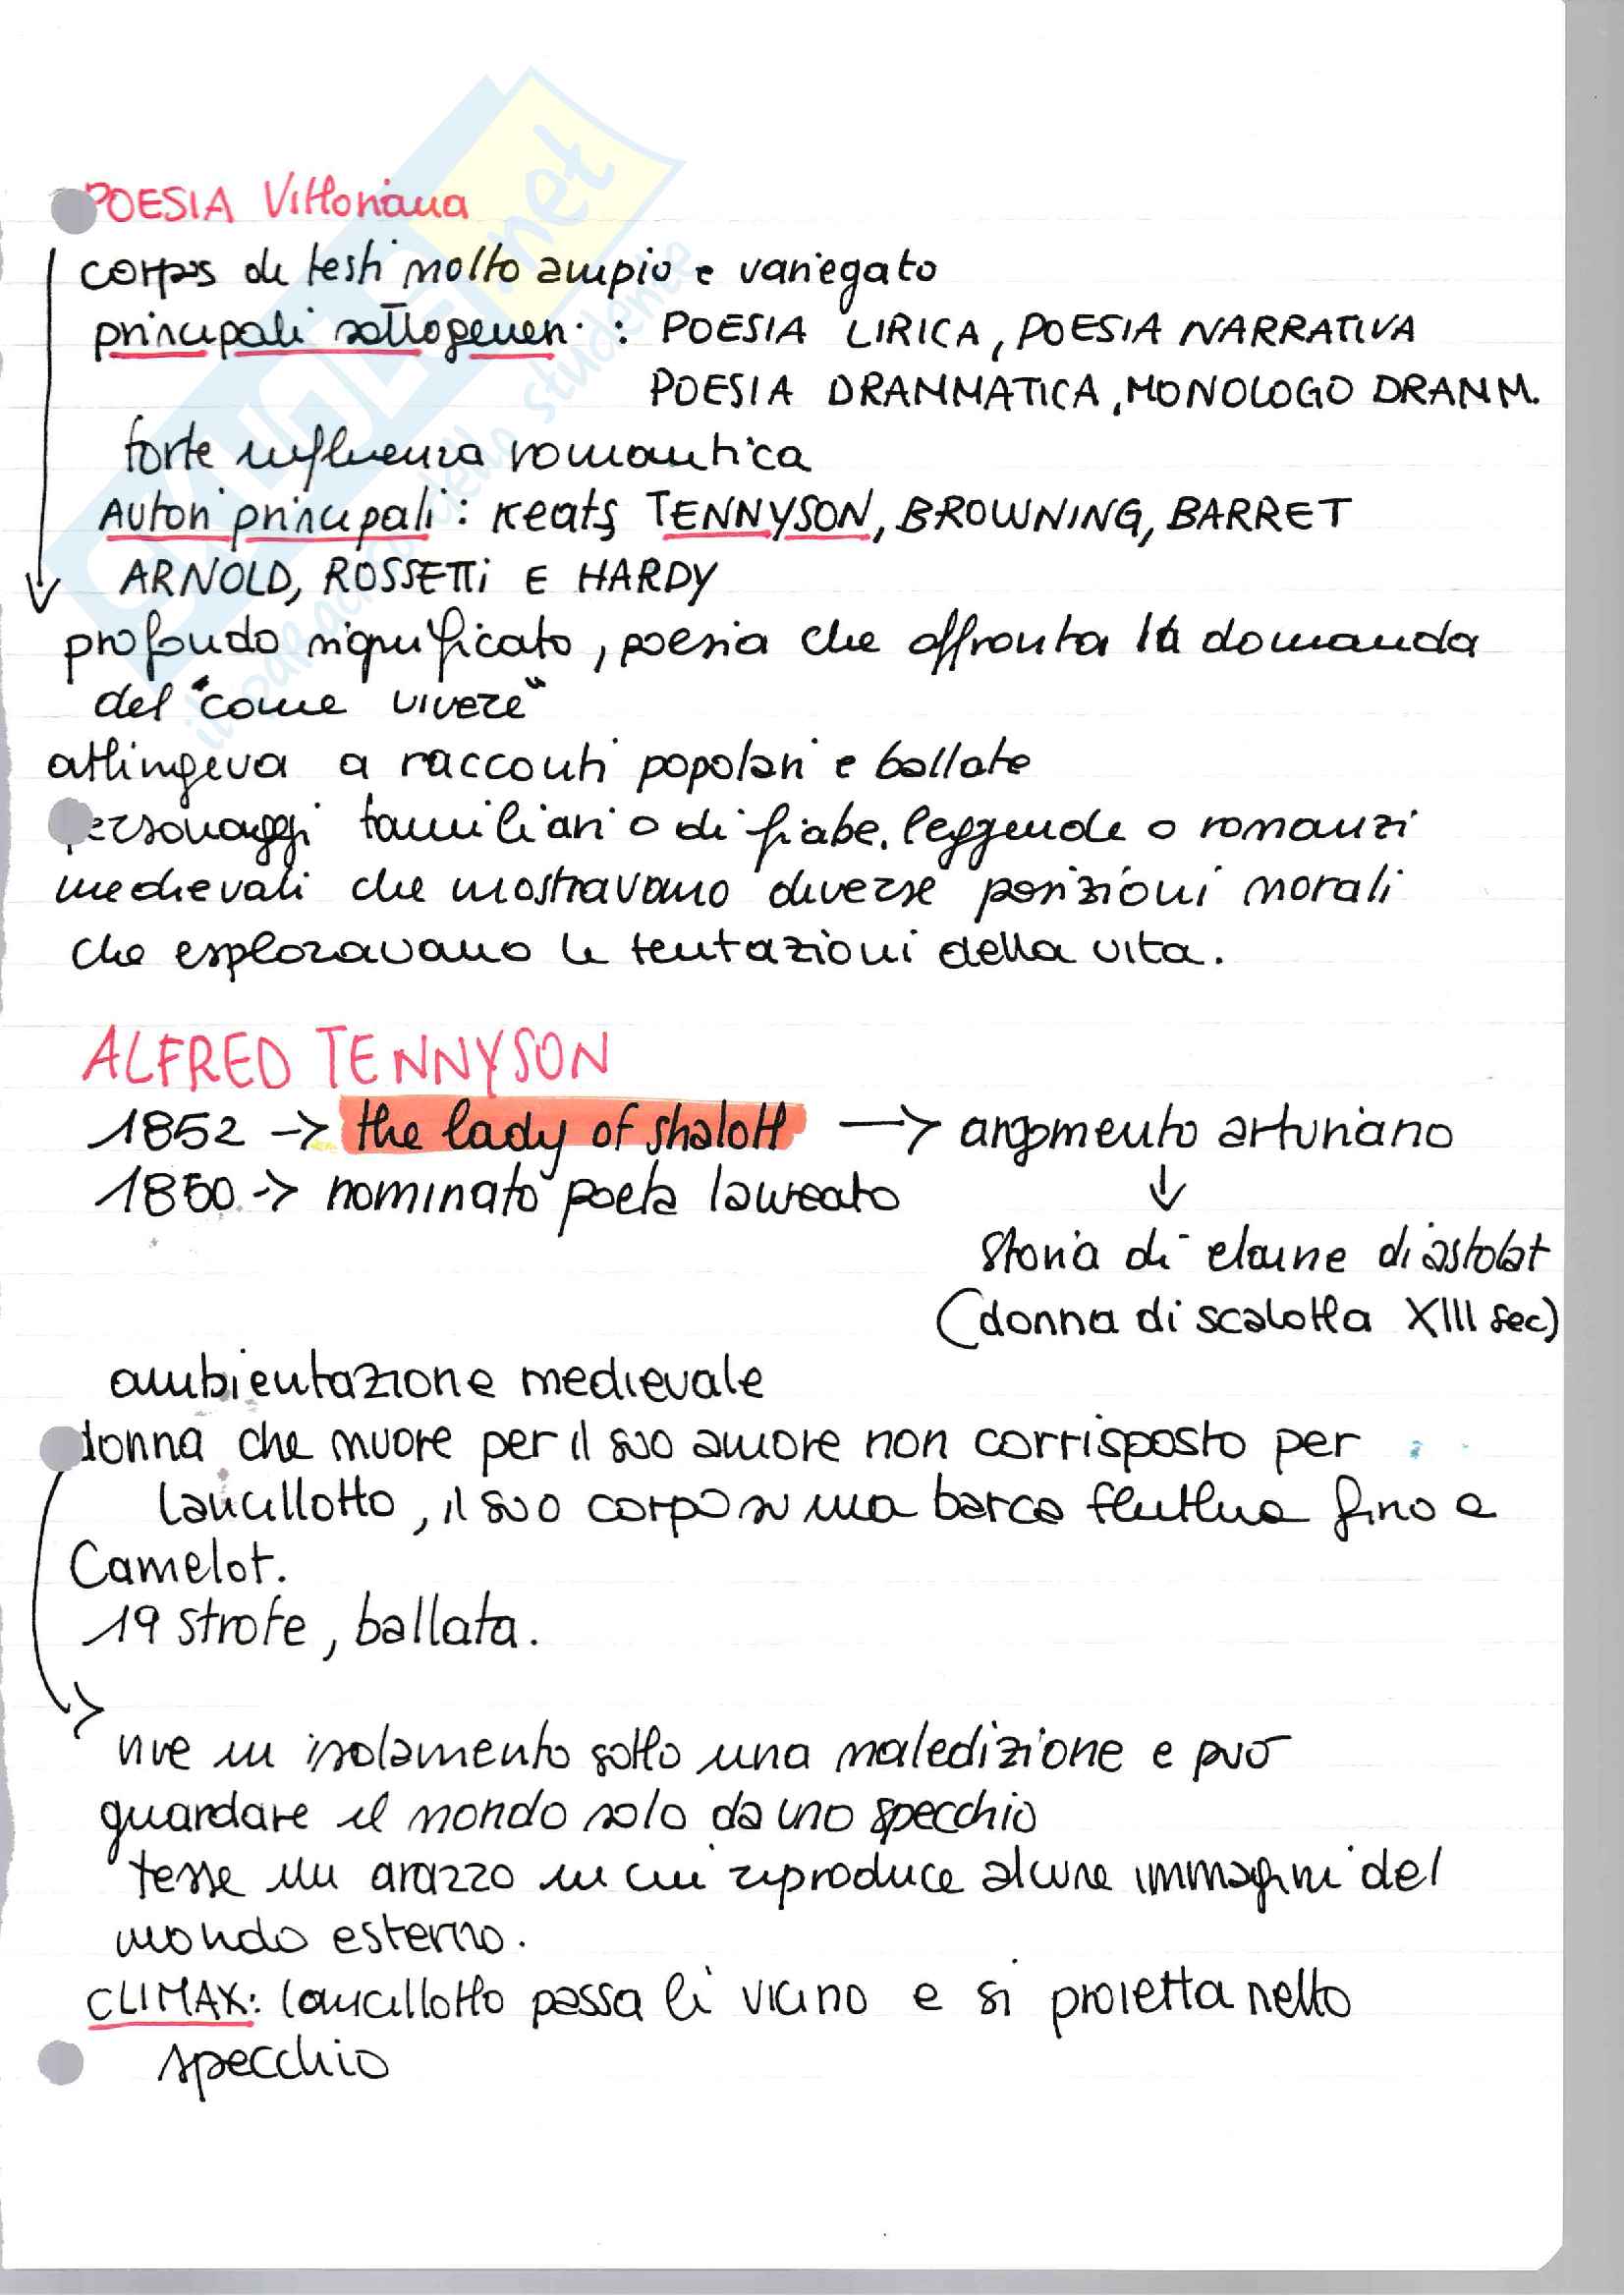 POESIA Vittoriana
corpus di testi molto ampio e variegato
principali sottogeneri : POESIA LIRICA, POESIA NARRATIVA
POESIA DRAMMATICA, MONOLOGO DRAMM.
forte influenza romantica
Autori principali : Keats TENNYSON, BROWNING, BARRET
ARNOLD, ROSSETTi E HARDY
profondo significato, poesia che affronta la domanda
del "come vivere"
attingeva a racconti popolari e ballate
personaggi familiari o di fiabe, leggende o romanzi
medievali che mostravano diverse posizioni morali
che esploravano le tentazioni della vita.
ALFRED TENNYSON
1852 -> the lady of shalott -> argomento arturiano
1850 -> nominato poeta laureato
storia di elaine di astolat
(donna di scalotta XIII sec)
ambientazione medievale
donna che muore per il suo amore non corrisposto per
Lancillotto, il suo corpo su una barca fluttua fino a
Camelot.
19 strofe, ballata.
vive in isolamento sotto una maledizione e può
guardare il mondo solo da uno specchio
tesse un arazzo in cui riproduce alcune immagini del
mondo esterno.
CLIMAX: lancillotto passa lì vicino e si proietta nello
specchio
SKUOLA.net
il paradiso dello studente